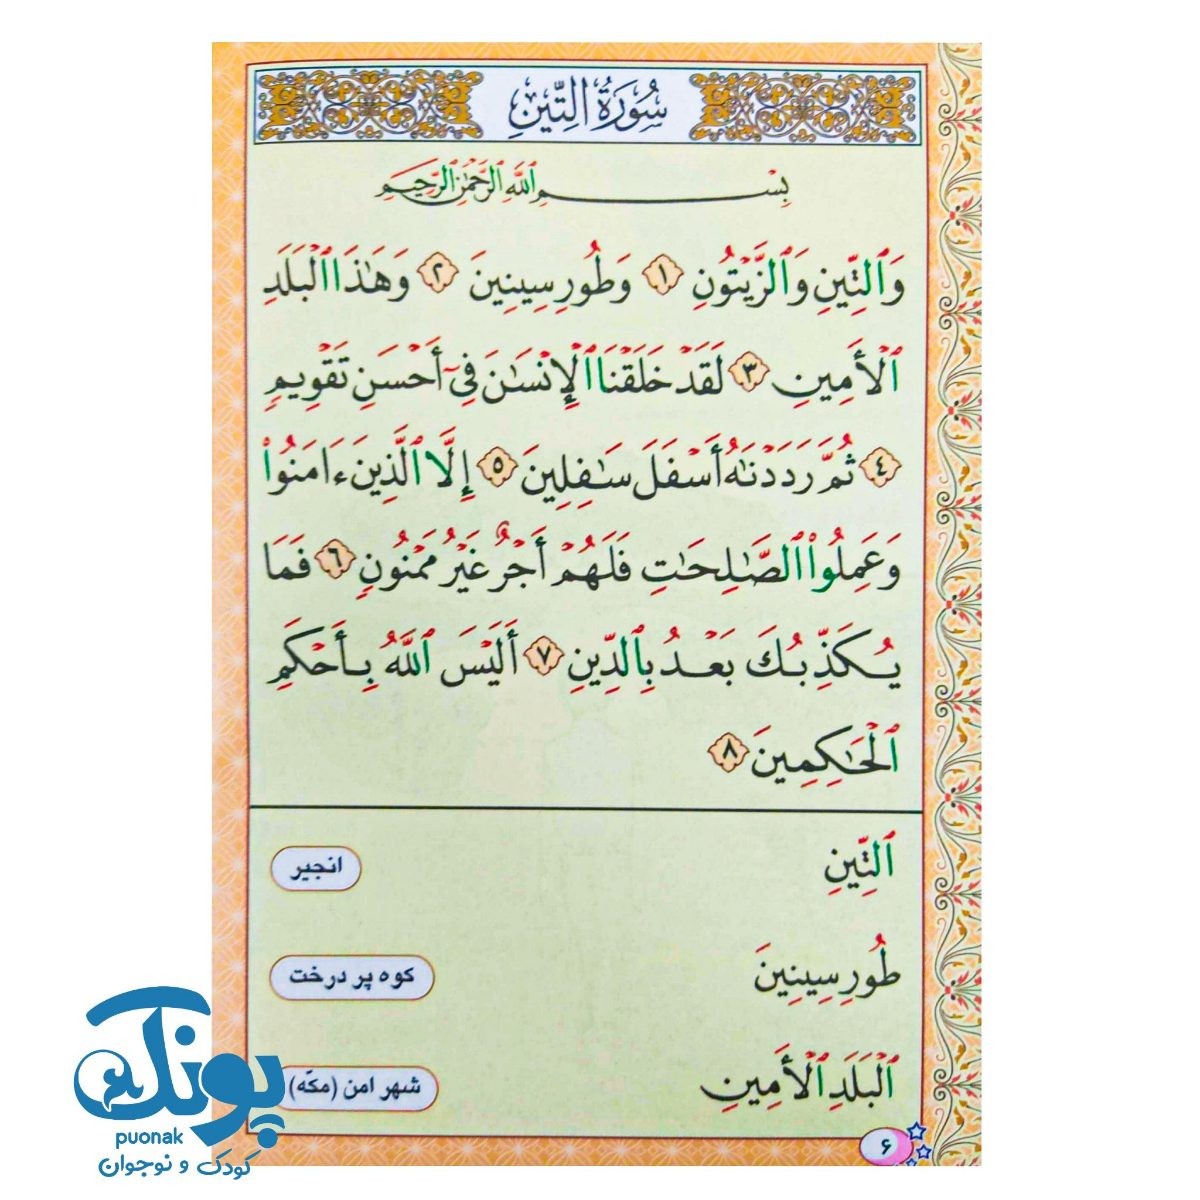 سُورَةُ التِّينِ
بِسْمِ ٱللَّهِ ٱلرَّحْمَٰنِ ٱلرَّحِيمِ
وَٱلتِّينِ وَٱلزَّيْتُونِ ١ وَطُورِ سِينِينَ ٢ وَهَٰذَا ٱلْبَلَدِ
ٱلْأَمِينِ ٣ لَقَدْ خَلَقْنَا ٱلْإِنْسَٰنَ فِىٓ أَحْسَنِ تَقْوِيمٍ
٤ ثُمَّ رَدَدْنَٰهُ أَسْفَلَ سَٰفِلِينَ ٥ إِلَّا ٱلَّذِينَ ءَامَنُوا۟
وَعَمِلُوا۟ ٱلصَّٰلِحَٰتِ فَلَهُمْ أَجْرٌ غَيْرُ مَمْنُونٍ ٦ فَمَا
يُكَذِّبُكَ بَعْدُ بِٱلدِّينِ ٧ أَلَيْسَ ٱللَّهُ بِأَحْكَمِ
ٱلْحَٰكِمِينَ ٨
ٱلتِّينِ انجیر
طُورِ سِينِينَ کوه پر درخت
ٱلْبَلَدِ ٱلْأَمِينِ شهر امن (مکّه)
۶
پونک
puonak
کودک و نوجوان